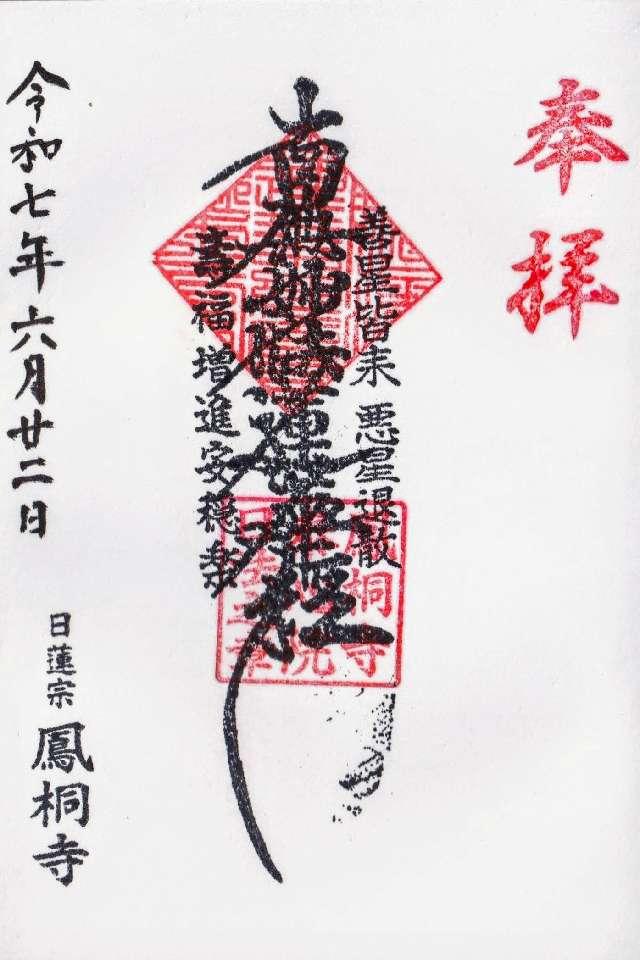 奉拝
善星皆来 悪星退散
南無妙法蓮華経
寿福増進安穏楽
令和七年六月廿二日
日蓮宗 鳳桐寺